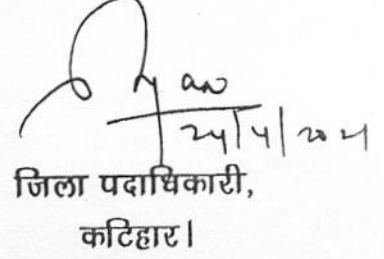 24/4/2021
जिला पदाधिकारी,
कटिहार।